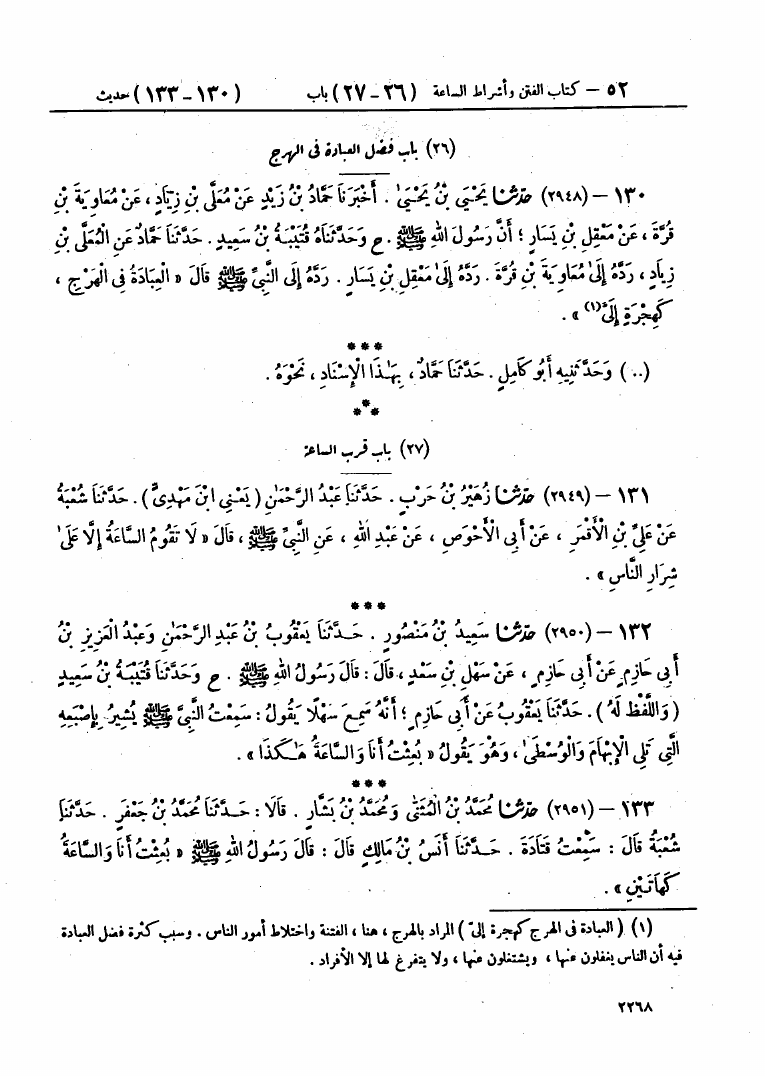 ٥٢ – كتاب الفتن وأشراط الساعة (٢٦ – ٢٧) باب (١٣٠ – ١٣٣) حديث
(٢٦) باب فضل العبادة فى الهرج
١٣٠ – (٢٩٤٨) حَدَّثَنَا يَحْيَىٰ بْنُ يَحْيَىٰ . أَخْبَرَنَا حَمَّادُ بْنُ زَيْدٍ عَنْ مُعَلَّى بْنِ زِيَادٍ ، عَنْ مُعَاوِيَةَ بْنِ
قُرَّةَ ، عَنْ مَعْقِلِ بْنِ يَسَارٍ ؛ أَنَّ رَسُولَ اللهِ ﷺ . ح وَحَدَّثَنَاهُ قُتَيْبَةُ بْنُ سَعِيدٍ . حَدَّثَنَا حَمَّادٌ عَنِ الْمُعَلَّى بْنِ
زِيَادٍ ، رَدَّهُ إِلَىٰ مُعَاوِيَةَ بْنِ قُرَّةَ . رَدَّهُ إِلَىٰ مَعْقِلِ بْنِ يَسَارٍ . رَدَّهُ إِلَى النَّبِيِّ ﷺ قَالَ « الْعِبَادَةُ فِى الْهَرْجِ ،
كَهِجْرَةٍ إِلَىَّ(١) » .
***
(..) وَحَدَّثَنِيهِ أَبُو كَامِلٍ . حَدَّثَنَا حَمَّادٌ ، بِهَـٰذَا الْإِسْنَادِ ، نَحْوَهُ .
***
(٢٧) باب قرب الساعة
١٣١ – (٢٩٤٩) حَدَّثَنَا زُهَيْرُ بْنُ حَرْبٍ . حَدَّثَنَا عَبْدُ الرَّحْمَـٰنِ (يَعْنِى ابْنَ مَهْدِىٍّ) . حَدَّثَنَا شُعْبَةُ
عَنْ عَلِىِّ بْنِ الْأَقْمَرِ ، عَنْ أَبِى الْأَحْوَصِ ، عَنْ عَبْدِ اللهِ ، عَنِ النَّبِيِّ ﷺ ، قَالَ « لَا تَقُومُ السَّاعَةُ إِلَّا عَلَىٰ
شِرَارِ النَّاسِ » .
***
١٣٢ – (٢٩٥٠) حَدَّثَنَا سَعِيدُ بْنُ مَنْصُورٍ . حَدَّثَنَا يَعْقُوبُ بْنُ عَبْدِ الرَّحْمَـٰنِ وَعَبْدُ الْعَزِيزِ بْنُ
أَبِى حَازِمٍ عَنْ أَبِى حَازِمٍ ، عَنْ سَهْلِ بْنِ سَعْدٍ ، قَالَ : قَالَ رَسُولُ اللهِ ﷺ . ح وَحَدَّثَنَا قُتَيْبَةُ بْنُ سَعِيدٍ
(وَاللَّفْظُ لَهُ) . حَدَّثَنَا يَعْقُوبُ عَنْ أَبِى حَازِمٍ ؛ أَنَّهُ سَمِعَ سَهْلًا يَقُولُ : سَمِعْتُ النَّبِيَّ ﷺ يُشِيرُ بِإِصْبَعِهِ
الَّتِى تَلِى الْإِبْهَامَ وَالْوُسْطَىٰ ، وَهُوَ يَقُولُ « بُعِثْتُ أَنَا وَالسَّاعَةُ هَـٰكَذَا » .
***
١٣٣ – (٢٩٥١) حَدَّثَنَا مُحَمَّدُ بْنُ الْمُثَنَّىٰ وَمُحَمَّدُ بْنُ بَشَّارٍ . قَالَا : حَدَّثَنَا مُحَمَّدُ بْنُ جَعْفَرٍ . حَدَّثَنَا
شُعْبَةُ قَالَ : سَمِعْتُ قَتَادَةَ . حَدَّثَنَا أَنَسُ بْنُ مَالِكٍ قَالَ : قَالَ رَسُولُ اللهِ ﷺ « بُعِثْتُ أَنَا وَالسَّاعَةُ
كَهَاتَيْنِ » .
(١) (العبادة فى الهرج كهجرة إلىّ) المراد بالهرج ، هنا ، الفتنة واختلاط أمور الناس . وسبب كثرة فضل العبادة
فيه أن الناس يغفلون عنها ، ويشتغلون عنها ، ولا يتفرغ لها إلا الأفراد .
٢٢٦٨